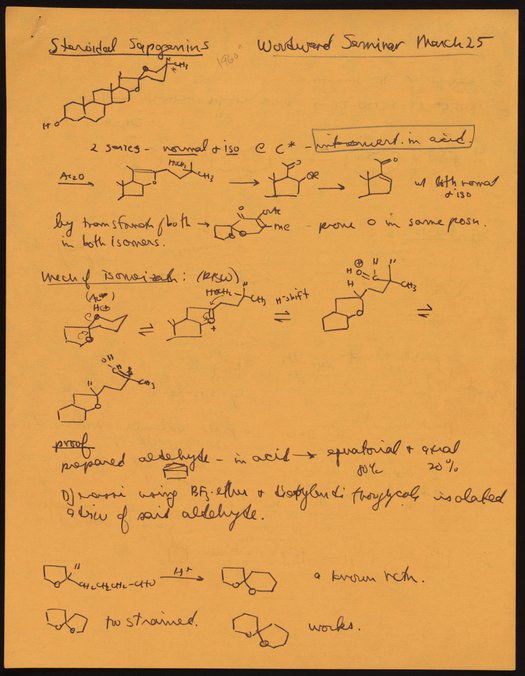 Steroidal Sapogenins Woodward Seminar March 25
1960
CH3
HO
2 series - normal & iso @ C* - interconvert. in acid.
Ac2O
HOCH2
CH3
OR
w/ both normal & iso
by transform of both → - prove O in same posn.
in both isomers.
Mech of isomerizatn: (RBW)
H⊕
HOCH2
CH3
H-shift
H
CH3
OH
CH3
proof
prepared aldehyde - in acid → equatorial & axial
80% 20%
Djerassi using BF3·ether & isolated
a deriv of said aldehyde.
CH2CH2CH2-CHO
H+
a known rctn.
too strained.
works.